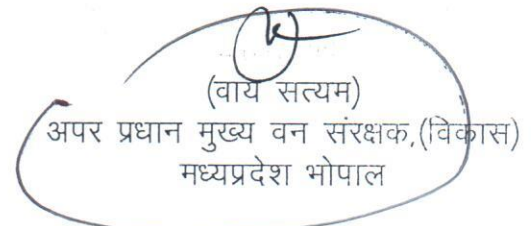 (वाय सत्यम)
अपर प्रधान मुख्य वन संरक्षक,(विकास)
मध्यप्रदेश भोपाल